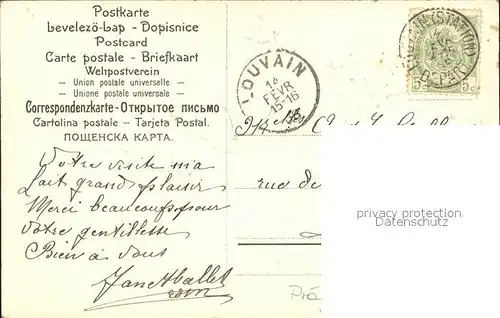 Postkarte
Levelező-Lap - Dopisnice
Postcard
Carte postale - Briefkaart
Weltpostverein
Union postale universelle
Unione postale universale
Correspondenzkarte - Открытое письмо
Cartolina postale - Tarjeta Postal.
ПОЩЕНСКА КАРТА.
LOUVAIN
14
FEVR
15-16
(STATION)
DEPART
5c 5c
rue de
Votre visite m'a
fait grand plaisir
Merci beaucoup pour
votre gentillesse
Bien à vous
privacy protection
Datenschutz